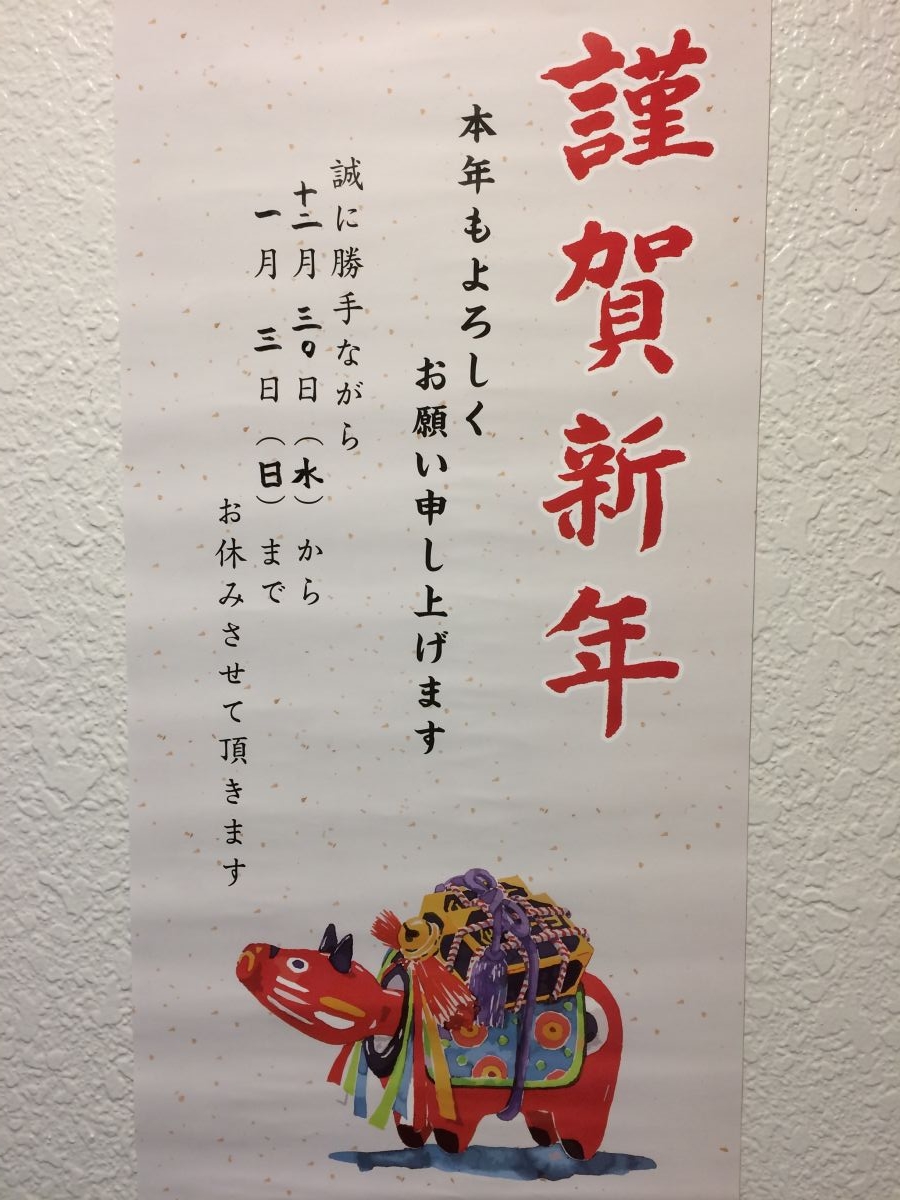 謹賀新年
本年もよろしく
お願い申し上げます
誠に勝手ながら
十二月三〇日（水）から
一月三日（日）まで
お休みさせて頂きます